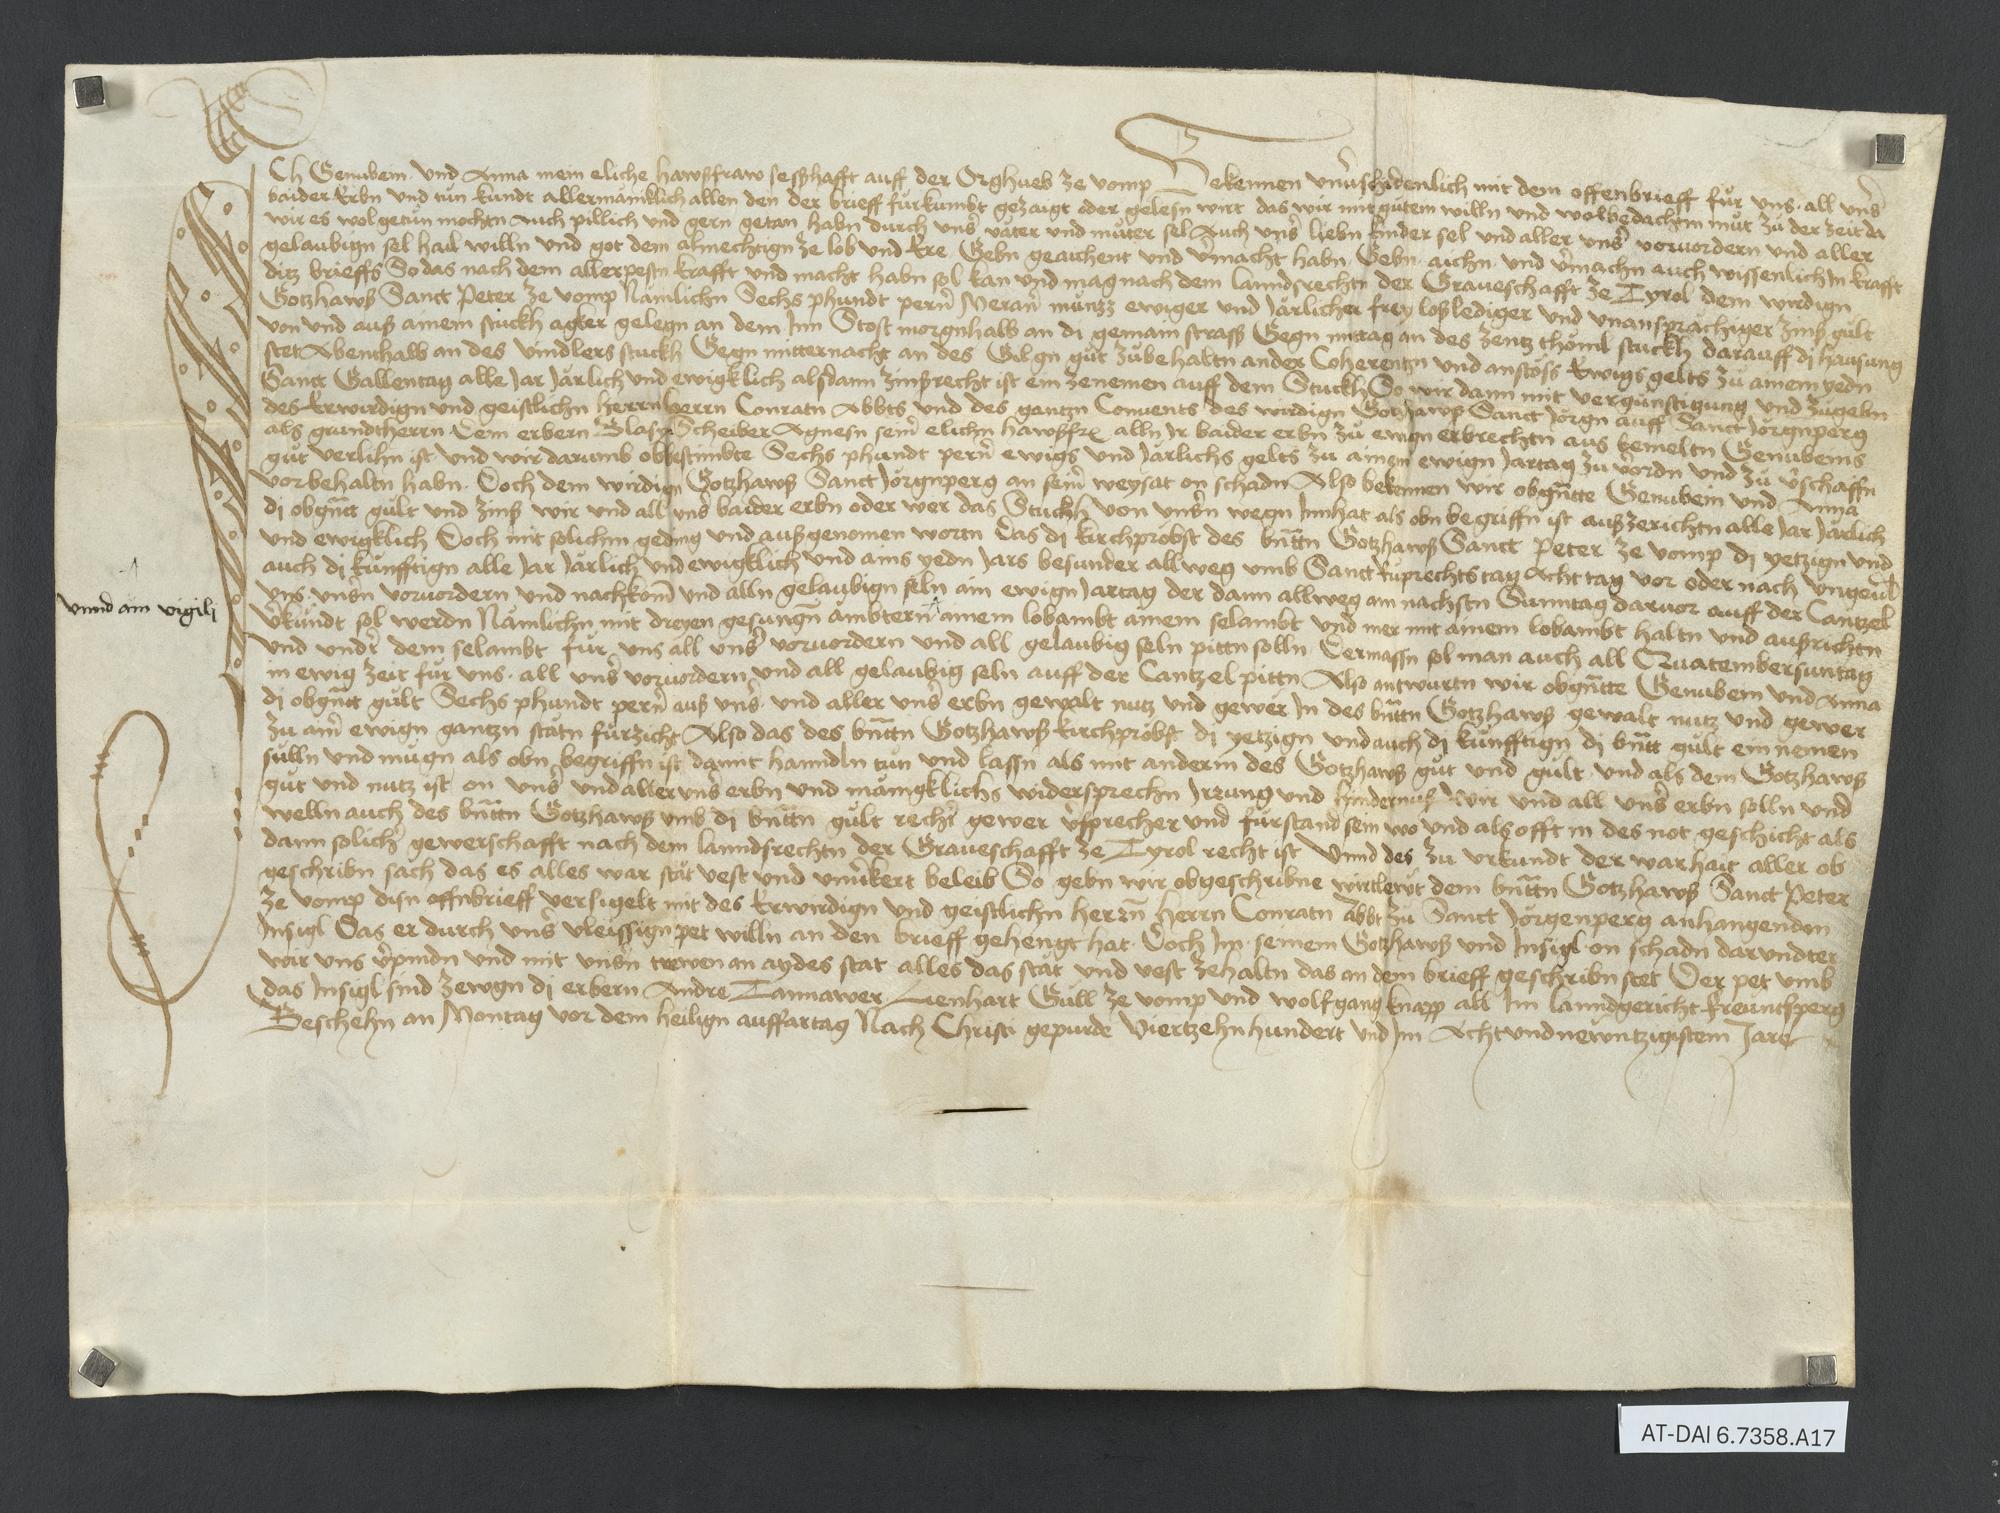 Ich Genubein und Anna mein eliche hawßfraw seßhafft auff der Orghueb ze vomp Bekennen unverschidenlich mit dem offenbrieff für uns all unser
baider Erbn und tůn kundt allermäniklich allen den der brieff fürkumbt gezaigt oder gelesn wirt das wir mit gůtem willn und wolbedachtm můt zů der zeit da
wir es wol getůn mochtn Auch pillich und gern getan habn durch unser vater und můter sel Auch unser liebn kinder sel und aller unser vorvordern und aller
gelaubign sel hail willn und got dem almechtign ze lob und Ere Gebn geaichent und vermacht habn Gebn aichn und vermachn auch wissenlich In krafft
ditz brieffs So das nach dem allerpestn krafft und macht habn sol kan und mag nach dem lanndsrechtn der Graveschafft ze Tyrol dem wirdign
Gotzhawß Sanct Peter ze vomp Nämlichn Sechs phundt perner Meraner münzz ewiger und Järlicher frey loßlediger und unansprächiger zinß gült
von und auß ainem stuckh agker gelegn an dem Inn Stost morgnhalb an di gemain strass Gegn mittag an des zentz thöml stuckh darauff dj hausung
stet Abenthalb an des vindlers stuckh Gegn mitternacht an des Gilgn gůt zůbehaltn ander Coherentzn und anstöss Ewigs gelts zu ainem yedn
Sanct Gallentag alle Jar Järlich und ewigklich alsdann zinßrecht ist ein zenemen auff dem Stuckh So wir dann mit vergünstigung und zůgebn
des Erwirdign und geistlichn herrn herrn Conratn Abbts und des gantzn Convents des wirdign Gotzhawß Sanct Jörgn auff Sanct Jörgnperg
als gruntherrn dem erbern Blasy Scheiber Agnesn seiner elichn hawßfr. alln Ir baider erbn zů ewign erbrechtn aus bemeltn Genubeins
gůt verlihn ist und wir darumb obbestimbte Sechs phundt perner ewigs und Järlichs gelts zu ainem ewign Jartag zu vordn und zů verschaffn
vorbehaltn habn. Doch dem wirdign Gotzhawß Sanct Jörgnperg an seiner weysat on schadn Also bekennen wir obgnantte Genubein und Anna
dj obgnantt gült und zinß wir und all unser baider erbn oder wer das Stuckh von unsern wegn Innhat als obn begriffn ist außzerichtn alle Jar Järlich
und ewigklich Doch mit solichm geding und außgenomen wortn Das dj kirchpröbst des benanttn Gotzhawß Sanct Peter ze vomp dj yetzign und
auch dj künfftign alle Jar Järlich und ewigklich und ains yedn Jars besunder allweg umb Sanct Růprechts tag Acht tag vor oder nach ungeverlich
uns unsern vorvordern und nachkomen und alln gelaubign seln ain ewign Jartag der dann allweg am nachstn Sunntag darvor auff der Cantzel
verkündt sol werdn Nämlichn mit dreyen gesungen ämbtern ainem lobambt ainem selambt und mer mit ainem lobambt haltn und außrichtn
unnd ain vigilj
und under dem selambt für uns all unser vorvordern und all gelaubig seln pittn solln Dermassn sol man auch all Quatembersuntag
in ewig zeit für uns all unser vorvordern und all gelaubig seln auff der Cantzel pittn Also antwurtn wir obgnantte Genubein und Anna
dj obgnantt gült Sechs phundt perner auß uns und aller unser erbn gewalt nutz und gewer In des benanttn Gotzhawß gewalt nutz und gewer
zu ainer ewign gantzn stätn fürzicht Also das des benanttn Gotzhawß kirchpröbst dj yetzign und auch dj künfftign dj benantt gült ein nemen
sülln und mügn als obn begriffn ist damit hanndln tůn und lassn als mit anderm des Gotzhawß gůt und gült und als dem Gotzhawß
gůt und nutz ist on unser und aller unser erbn und mänigklichs widersprechn Irrung und hindernuß Wir und all unser erbn solln und
welln auch des benanttn Gotzhawß umb dj benanttn gült rechter gewer versprecher und fürstand sein wo und als offt in des not geschicht als
dann solicher gewerschafft nach dem lanndsrechtn der Graveschafft ze Tyrol recht ist Unnd des zu urkundt der warhait aller ob
geschribn sach das es alles war stät vest und unverkert beleib So gebn wir obgeschribne wirtlewt dem benanttn Gotzhawß Sanct Peter
ze vomp disn offnbrieff versigelt mit des Erwirdign und geistlichn herrn herrn Conratn Abbt zu Sanct Jörgenperg anhangenden
Insigl Das er durch unser vleissign pet willn an den brieff gehengt hat. Doch Im seinem Gotzhawß und Insigl on schadn darundter
wir uns verpindn und mit unsern trewen an aydes stat alles das stät und vest zehaltn das an dem brieff geschribn stet Der pet umb
das Insigl sind zewgn dj erbern Andre Tannawer Lienhart Güll ze vomp und wolfgang knapp all Im lanndgericht freuntsperg
Beschehn an Montag vor dem heilign auffartag Nach Christi gepurde Viertzehnhundert und Im Acht und newntzigistem Jare
AT-DAI 6.7358.A17